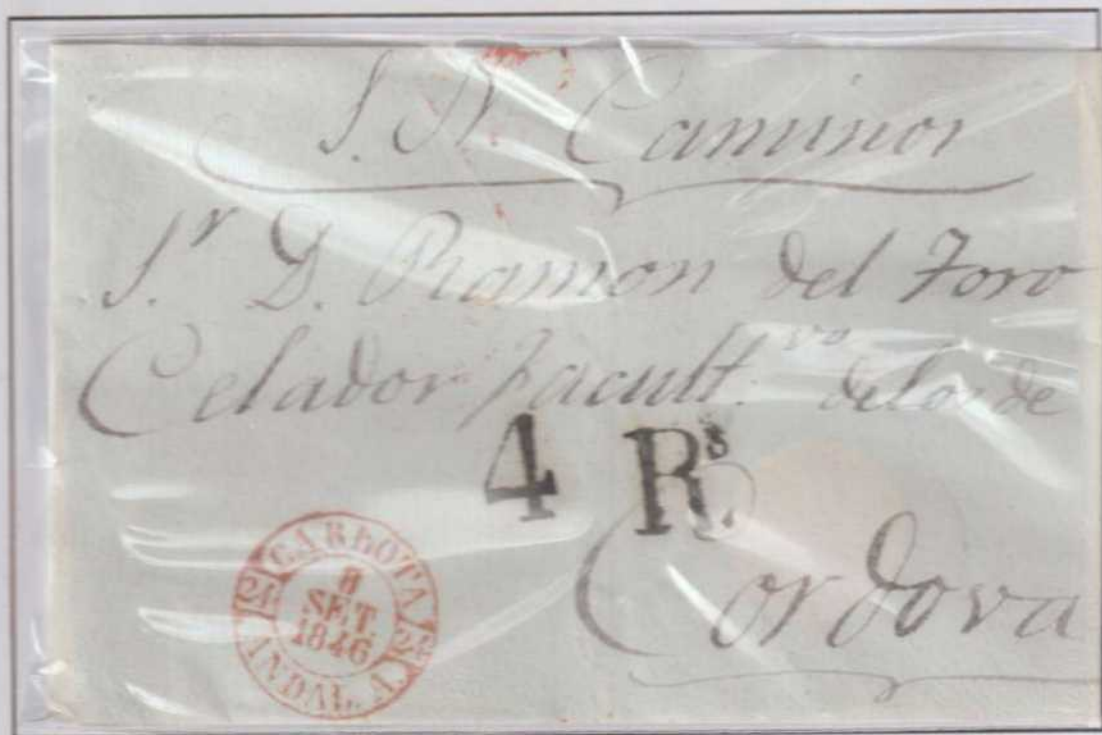 S. N. Caminos
S.r D. Ramon del Toro
Celador facult.vo de los de
4 R.s
Cordova
CARLOTA
8
SET
1846
ANDAL. B.